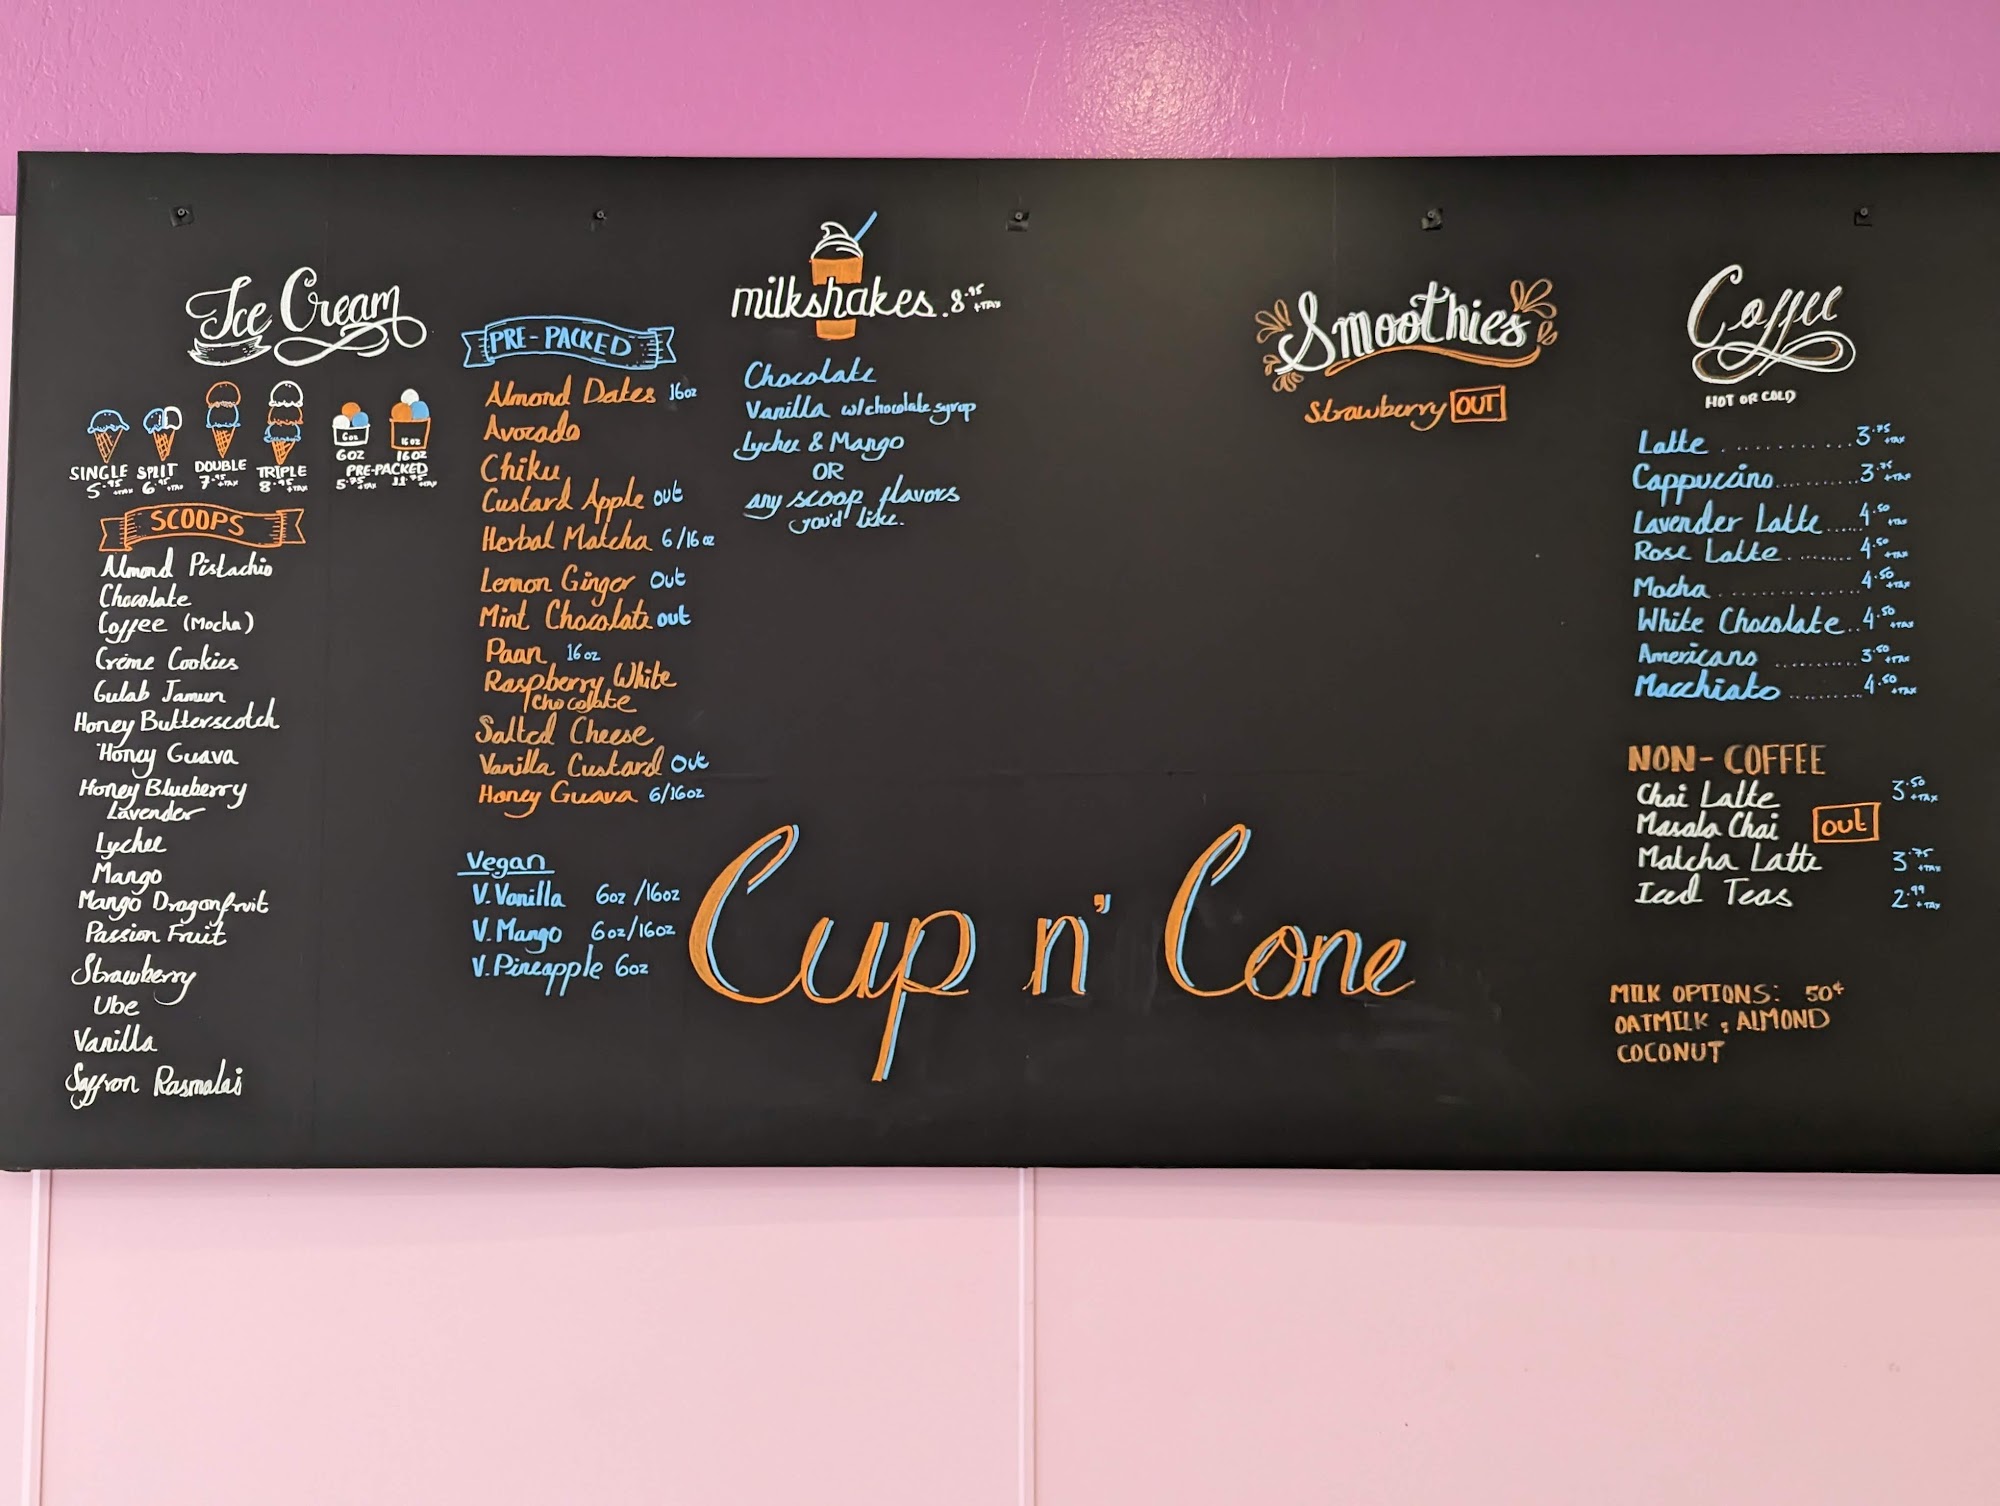 Ice Cream
SINGLE SPLIT DOUBLE TRIPLE
5.95 +TAX 6.95 +TAX 7.95 +TAX 8.95 +TAX
6oz 16oz
6OZ 16OZ
PRE-PACKED
5.75 +TAX 11.75 +TAX
SCOOPS
Almond Pistachio
Chocolate
Coffee (Mocha)
Créme Cookies
Gulab Jamun
Honey Butterscotch
Honey Guava
Honey Blueberry
Lavender
Lychee
Mango
Mango Dragonfruit
Passion Fruit
Strawberry
Ube
Vanilla
Saffron Rasmalai
PRE-PACKED
Almond Dates 16oz
Avocado
Chiku
Custard Apple out
Herbal Matcha 6/16oz
Lemon Ginger Out
Mint Chocolate out
Paan 16oz
Raspberry White
Chocolate
Salted Cheese
Vanilla Custard Out
Honey Guava 6/16oz
Vegan
V.Vanilla 6oz/16oz
V.Mango 6oz/16oz
V.Pineapple 6oz
milkshakes. 8.95 +TAX
Chocolate
Vanilla w/chocolate syrup
Lychee & Mango
OR
any scoop flavors
you'd like.
Cup n' Cone
Smoothies
Strawberry OUT
Coffee
HOT OR COLD
Latte ............ 3.75 +TAX
Cappuccino.......... 3.75 +TAX
Lavender Latte...... 4.50 +TAX
Rose Latte......... 4.50 +TAX
Mocha ............... 4.50 +TAX
White Chocolate.. 4.50 +TAX
Americano ........... 3.50 +TAX
Macchiato ......... 4.50 +TAX
NON-COFFEE
Chai Latte 3.50 +TAX
Masala Chai out
Matcha Latte 3.75 +TAX
Iced Teas 2.99 +TAX
MILK OPTIONS: 50¢
OATMILK, ALMOND
COCONUT